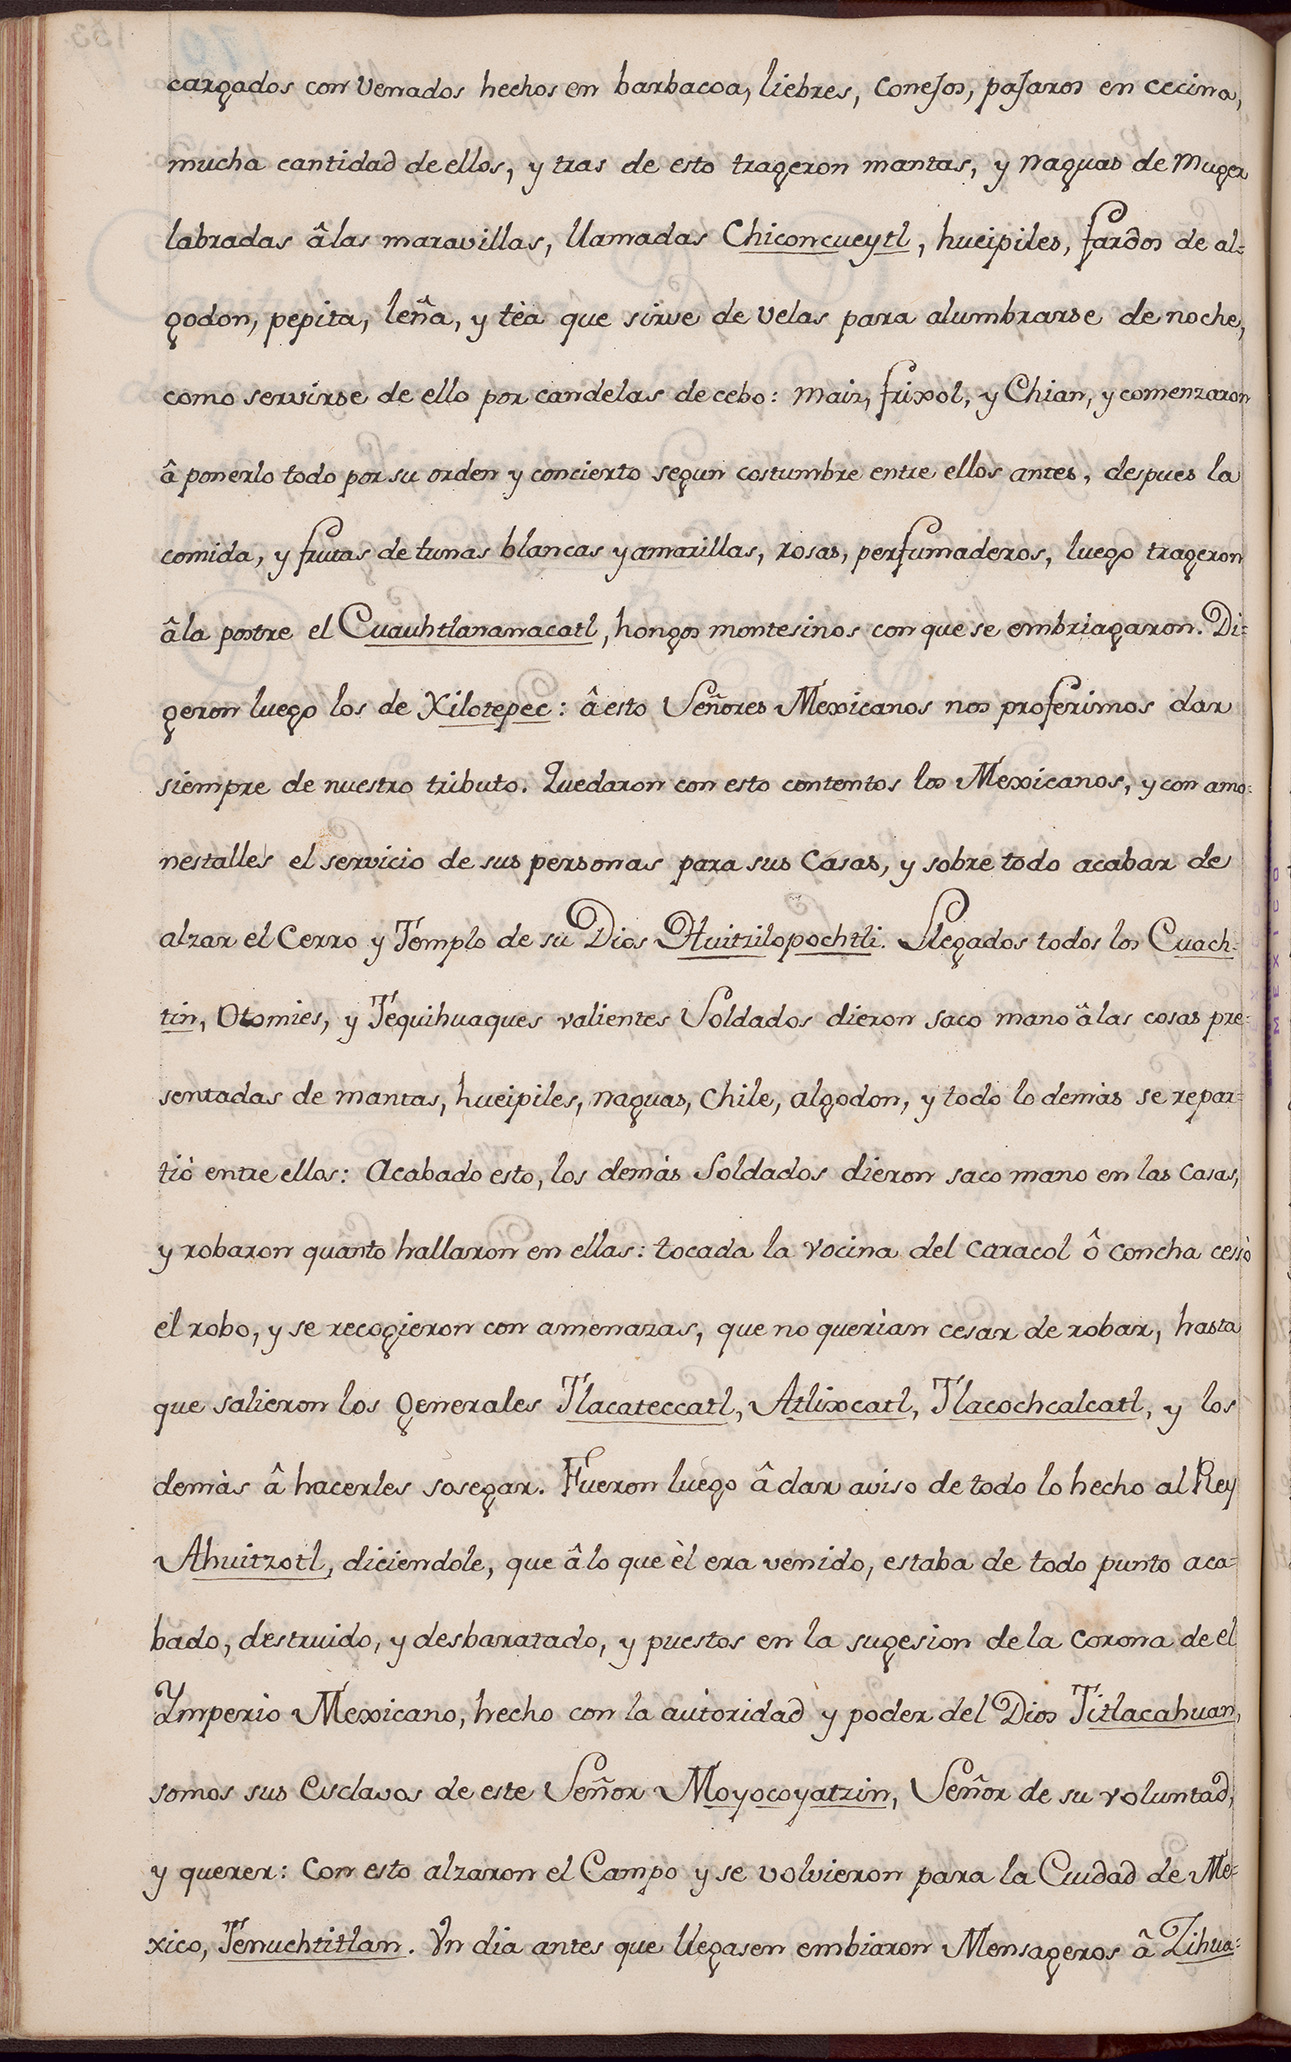 cargados con Venados hechos en barbacoa, liebres, Conejos, pajaros en cecina,
mucha cantidad de ellos, y tras de esto trageron mantas, y naguas de Muger
labradas â las maravillas, llamadas Chiconcueytl, hueipiles, fardos de al=
godon, pepita, leña, y tèa que sirve de Velas para alumbrarse de noche,
como servirse de ello por candelas de cebo: Maiz, frixol, y Chian, y comenzaron
â ponerlo todo por su orden y concierto segun costumbre entre ellos antes, despues la
comida, y frutas de tunas blancas y amarillas, rosas, perfumaderos, luego trageron
â la postre el Cuauhtlananacatl, hongos montesinos con que se embriagaron. Di=
geron luego los de Xilotepec: â esto Señores Mexicanos nos proferimos dar
siempre de nuestro tributo. Quedaron con esto contentos los Mexicanos, y con amo=
nestalles el servicio de sus personas para sus Casas, y sobre todo acabar de
alzar el Cerro y Templo de su Dios Huitzilopochtli. Llegados todos los Cuach=
tin, Otomies, y Tequihuaques valientes Soldados dieron saco mano â las cosas pre=
sentadas de mantas, hueipiles, naguas, Chile, algodon, y todo lo demàs se repar=
tiò entre ellos: Acabado esto, los demàs Soldados dieron saco mano en las Casas,
y robaron quanto hallaron en ellas: tocada la vocina del Caracol ô Concha cessò
el robo, y se recogieron con amenazas, que no querian cesar de robar, hasta
que salieron los Generales Tlacateccatl, Atlixcatl, Tlacochcalcatl, y los
demàs â hacerles sosegar. Fueron luego â dar aviso de todo lo hecho al Rey
Ahuitzotl, diciendole, que â lo que èl era venido, estaba de todo punto aca=
bado, destruido, y desbaratado, y puestos en la sugesion de la Corona de el
Ymperio Mexicano, hecho con la autoridad y poder del Dios Titlacahuan,
somos sus Esclavos de este Señor Moyocoyatzin, Señor de su voluntad,
y querer: Con esto alzaron el Campo y se volvieron para la Ciudad de Me=
xico, Tenuchtitlan. Un dia antes que llegasen embiaron Mensageros â Zihua=